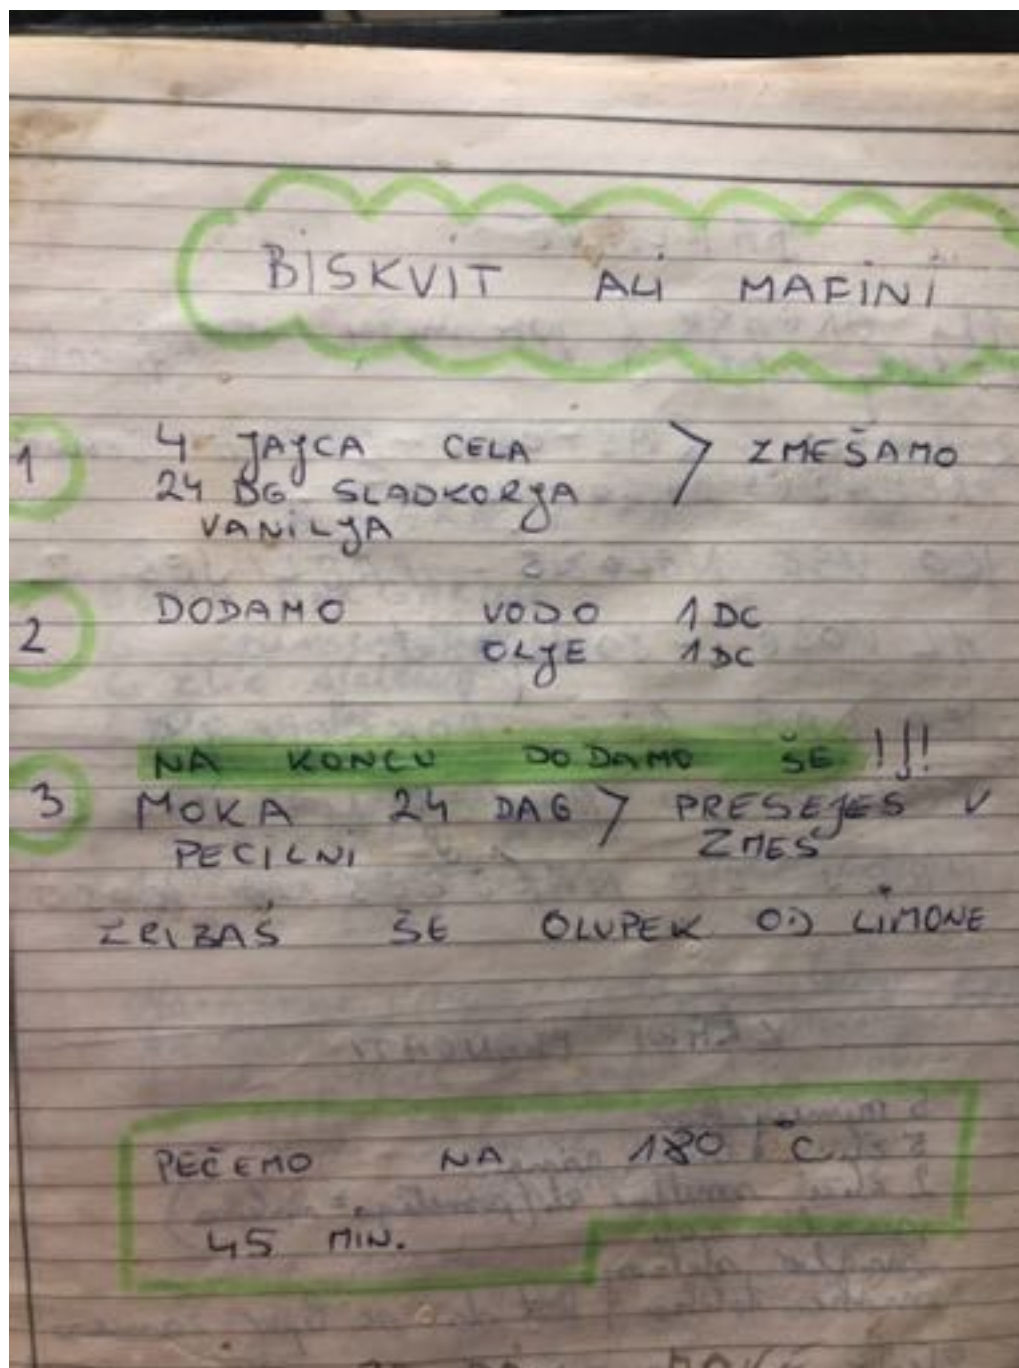 BISKVIT ALI MAFINI
1 4 JAJCA CELA > ZMEŠAMO
24 DG SLADKORJA
VANILJA
2 DODAMO VODO 1 DC
OLJE 1 DC
NA KONCU DODAMO ŠE !!!
3 MOKA 24 DAG > PRESEJEŠ V
PECILNI ZMES
ZRIBAŠ ŠE OLUPEK OD LIMONE
PEČEMO NA 180 °C
45 MIN.